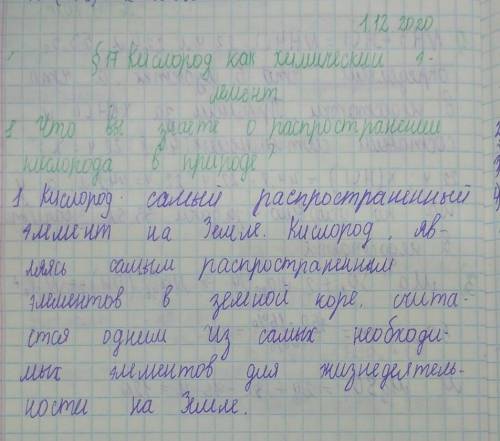 1.12.2020
§ 17 Кислород как химический э-
лемент
1. Что вы знаете о распространении
кислорода в природе?
1. Кислород самый распространенный
элемент на Земле. Кислород, яв-
ляясь самым распространенным
элементов в земной коре, счита-
ется одним из самых необходи-
мых элементов для жизнедеятель-
ности на Земле.